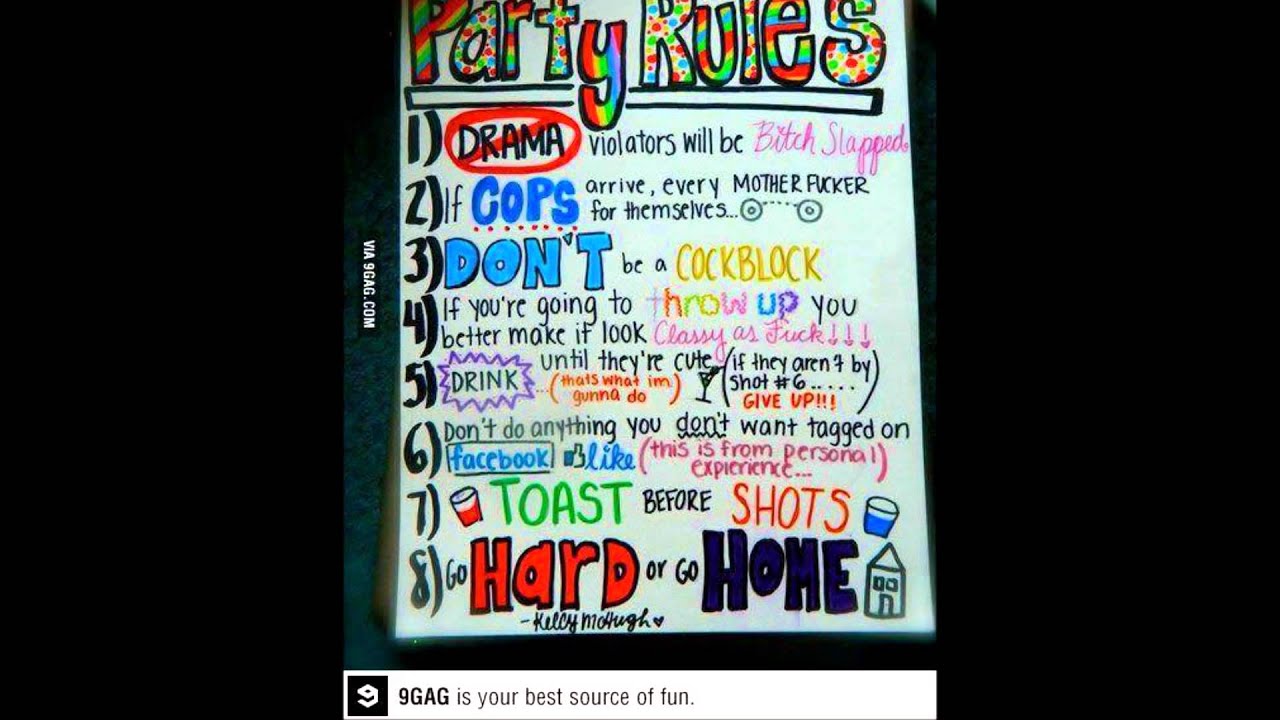 Party Rules
1) DRAMA violators will be Bitch Slapped.
2) If COPS arrive, every MOTHER FUCKER
for themselves...
3) DON'T be a COCKBLOCK
4) If you're going to throw up you
better make if look Classy as Fuck!!!
5) DRINK until they're cute (if they aren't by
...(thats what im shot #6.....
gunna do) GIVE UP!!!)
6) Don't do anything you don't want tagged on
facebook like (this is from personal
expierence...)
7) TOAST BEFORE SHOTS
8) GO HARD or GO HOME
-Kelly McHugh
VIA 9GAG.COM
9GAG is your best source of fun.